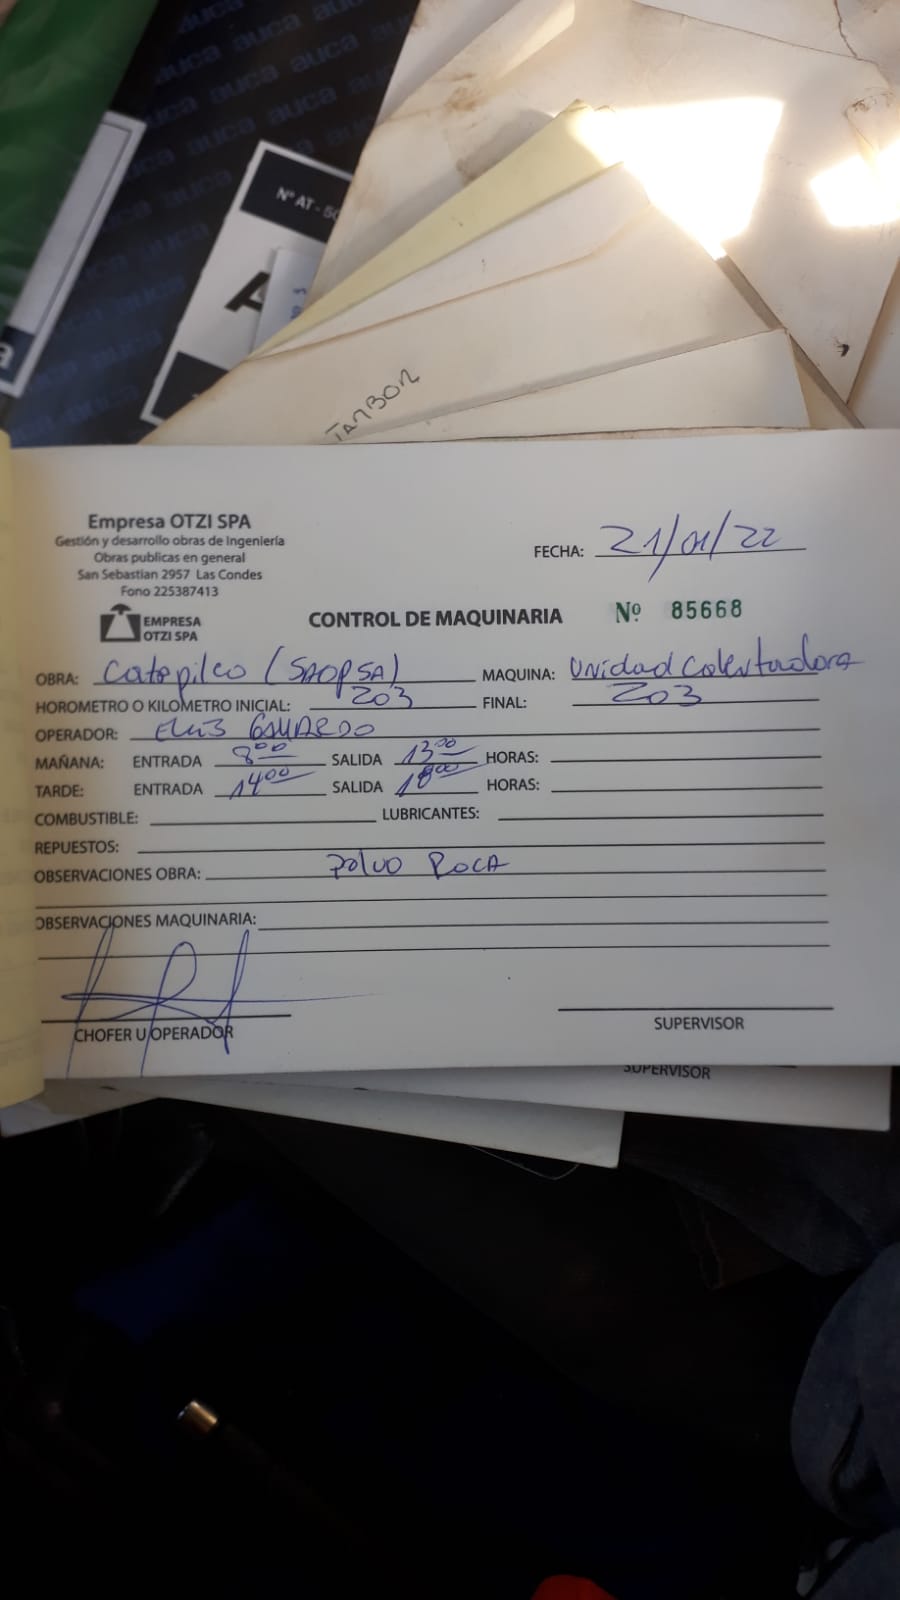 auca auca auca
auca auca auca
Nº AT - 50
A
a
TAMBOR
Empresa OTZI SPA
Gestión y desarrollo obras de Ingeniería
Obras publicas en general
San Sebastian 2957 Las Condes
Fono 225387413
EMPRESA
OTZI SPA
FECHA: 21/01/22
CONTROL DE MAQUINARIA Nº 85668
OBRA: Catapilco (SAOPSA) MAQUINA: Unidad Colectadora
HOROMETRO O KILOMETRO INICIAL: 203 FINAL: 203
OPERADOR:
MAÑANA: ENTRADA 8:00 SALIDA 13:00 HORAS:
TARDE: ENTRADA 14:00 SALIDA 18:00 HORAS:
COMBUSTIBLE: LUBRICANTES:
REPUESTOS:
OBSERVACIONES OBRA: Polvo ROCA
OBSERVACIONES MAQUINARIA:
CHOFER U OPERADOR
SUPERVISOR
SUPERVISOR